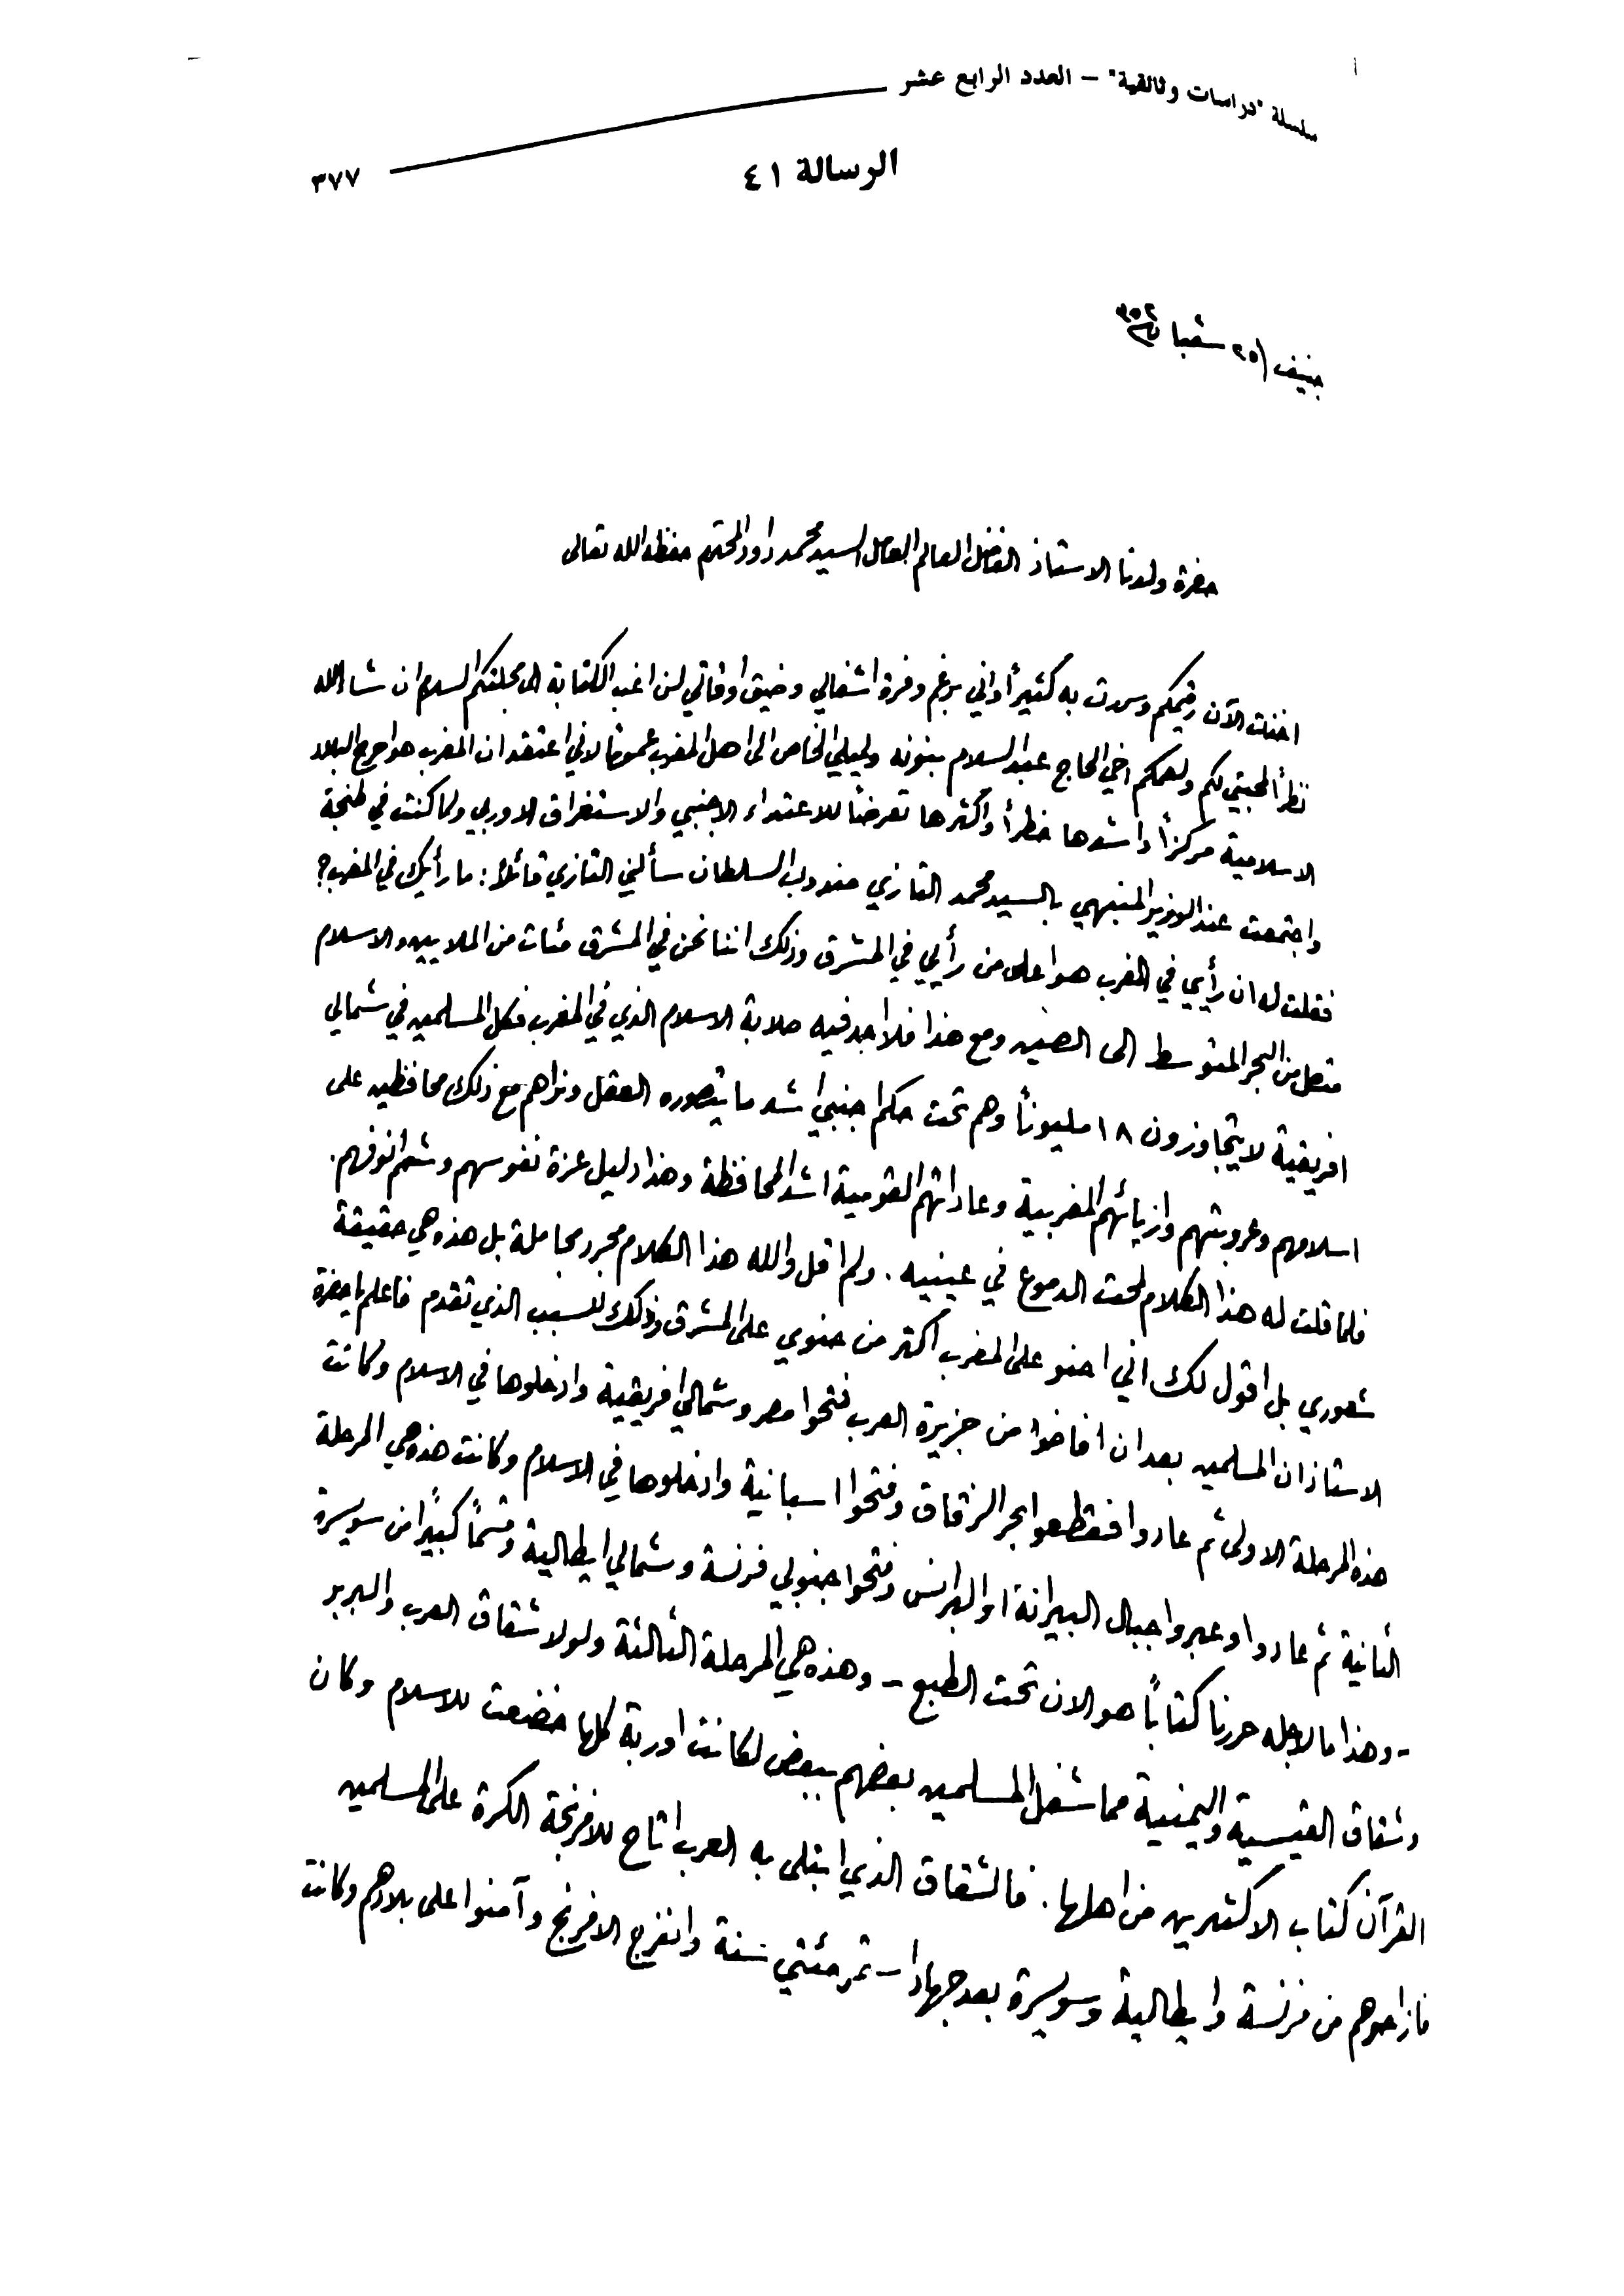 سلسلة "دراسات وثائقية" – العدد الرابع عشر
٣٧٧
الرسالة ٤١
جنيف ٢٥ شعبان ٣٥٢
حضرة ولدنا الاستاذ الفاضل العالم العامل السيد محمد داود المحترم حفظه الله تعالى
اخذت الآن رقيمكم وسررت به كثيراً واني برغم وفرة اشغالي وضيق اوقاتي لن اغب الكتابة الى مجلتكم السلام ان شاء الله
نظراً لمحبتي لكم ولعمكم اخي الحاج عبد السلام بنونه ولميلي الخاص الى اهل المغرب عموما لاني اعتقد ان المغرب هو احرج البلاد
الاسلامية مركزاً واشدها خطراً واكثرها تعرضاً للاعتداء الاجنبي والاستغراق الاوربي ولما كنت في طنجة
واجتمعت عند الوزير المنبهي بالسيد محمد التازي مندوب السلطان سألني التازي قائلاً: ما رأيك في المغرب؟
فقلت له ان رأيي في المغرب هو اعلى من رأيي في المشرق وذلك اننا نحن في المشرق مئات من الملايين والاسلام
متصل من البحر المتوسط الى الصين ومع هذا فلا اجد فيه صلابة الاسلام الذي في المغرب فكل المسلمين في شمالي
افريقية لا يتجاوزون ١٨ مليوناً وهم تحت حكم اجنبي اشد ما يتصوره العقل ونراهم مع ذلك محافظين على
اسلامهم وعروبتهم وازيائهم المغربية وعاداتهم القومية اشد المحافظة وهذا دليل عزة نفوسهم وشمم انوفهم.
فلما قلت له هذا الكلام لمحت الدموع في عينيه. ولم اقل والله هذا الكلام مجرد مجاملة بل هذه هي حقيقة
شعوري بل اقول لك اني احنو على المغرب اكثر من حنوي على المشرق وذلك للسبب الذي تقدم فاعلم يا حضرة
الاستاذ ان المسلمين بعد ان افاضوا من جزيرة العرب فتحوا مصر وشمالي افريقية وادخلوها في الاسلام وكانت
هذه المرحلة الاولى ثم عادوا فقطعوا بحر الزقاق وفتحوا اسبانية وادخلوها في الاسلام وكانت هذه هي المرحلة
الثانية ثم عادوا وعبروا جبال البيرانة او البرانس وفتحوا جنوبي فرنسة وشمالي ايطالية وقسماً كبيراً من سويسرة
- وهذا ما لاجله حررنا كتاباً هو الان تحت الطبع - وهذه هي المرحلة الثالثة ولولا شقاق العرب والبربر
وشقاق القيسية واليمنية مما شغل المسلمين بعضهم ببعض لكانت اوربة كلها خضعت للاسلام وكان
القرآن كتاب الاكثرين من اهلها. فالشقاق الذي ابتلى به العرب اتاح للافرنجة الكرة على المسلمين
فازاحوهم من فرنسة وايطالية وسويسرة بعد جهاد استمر مئتي سنة وانفرج الافرنج وآمنوا على بلادهم وكانت